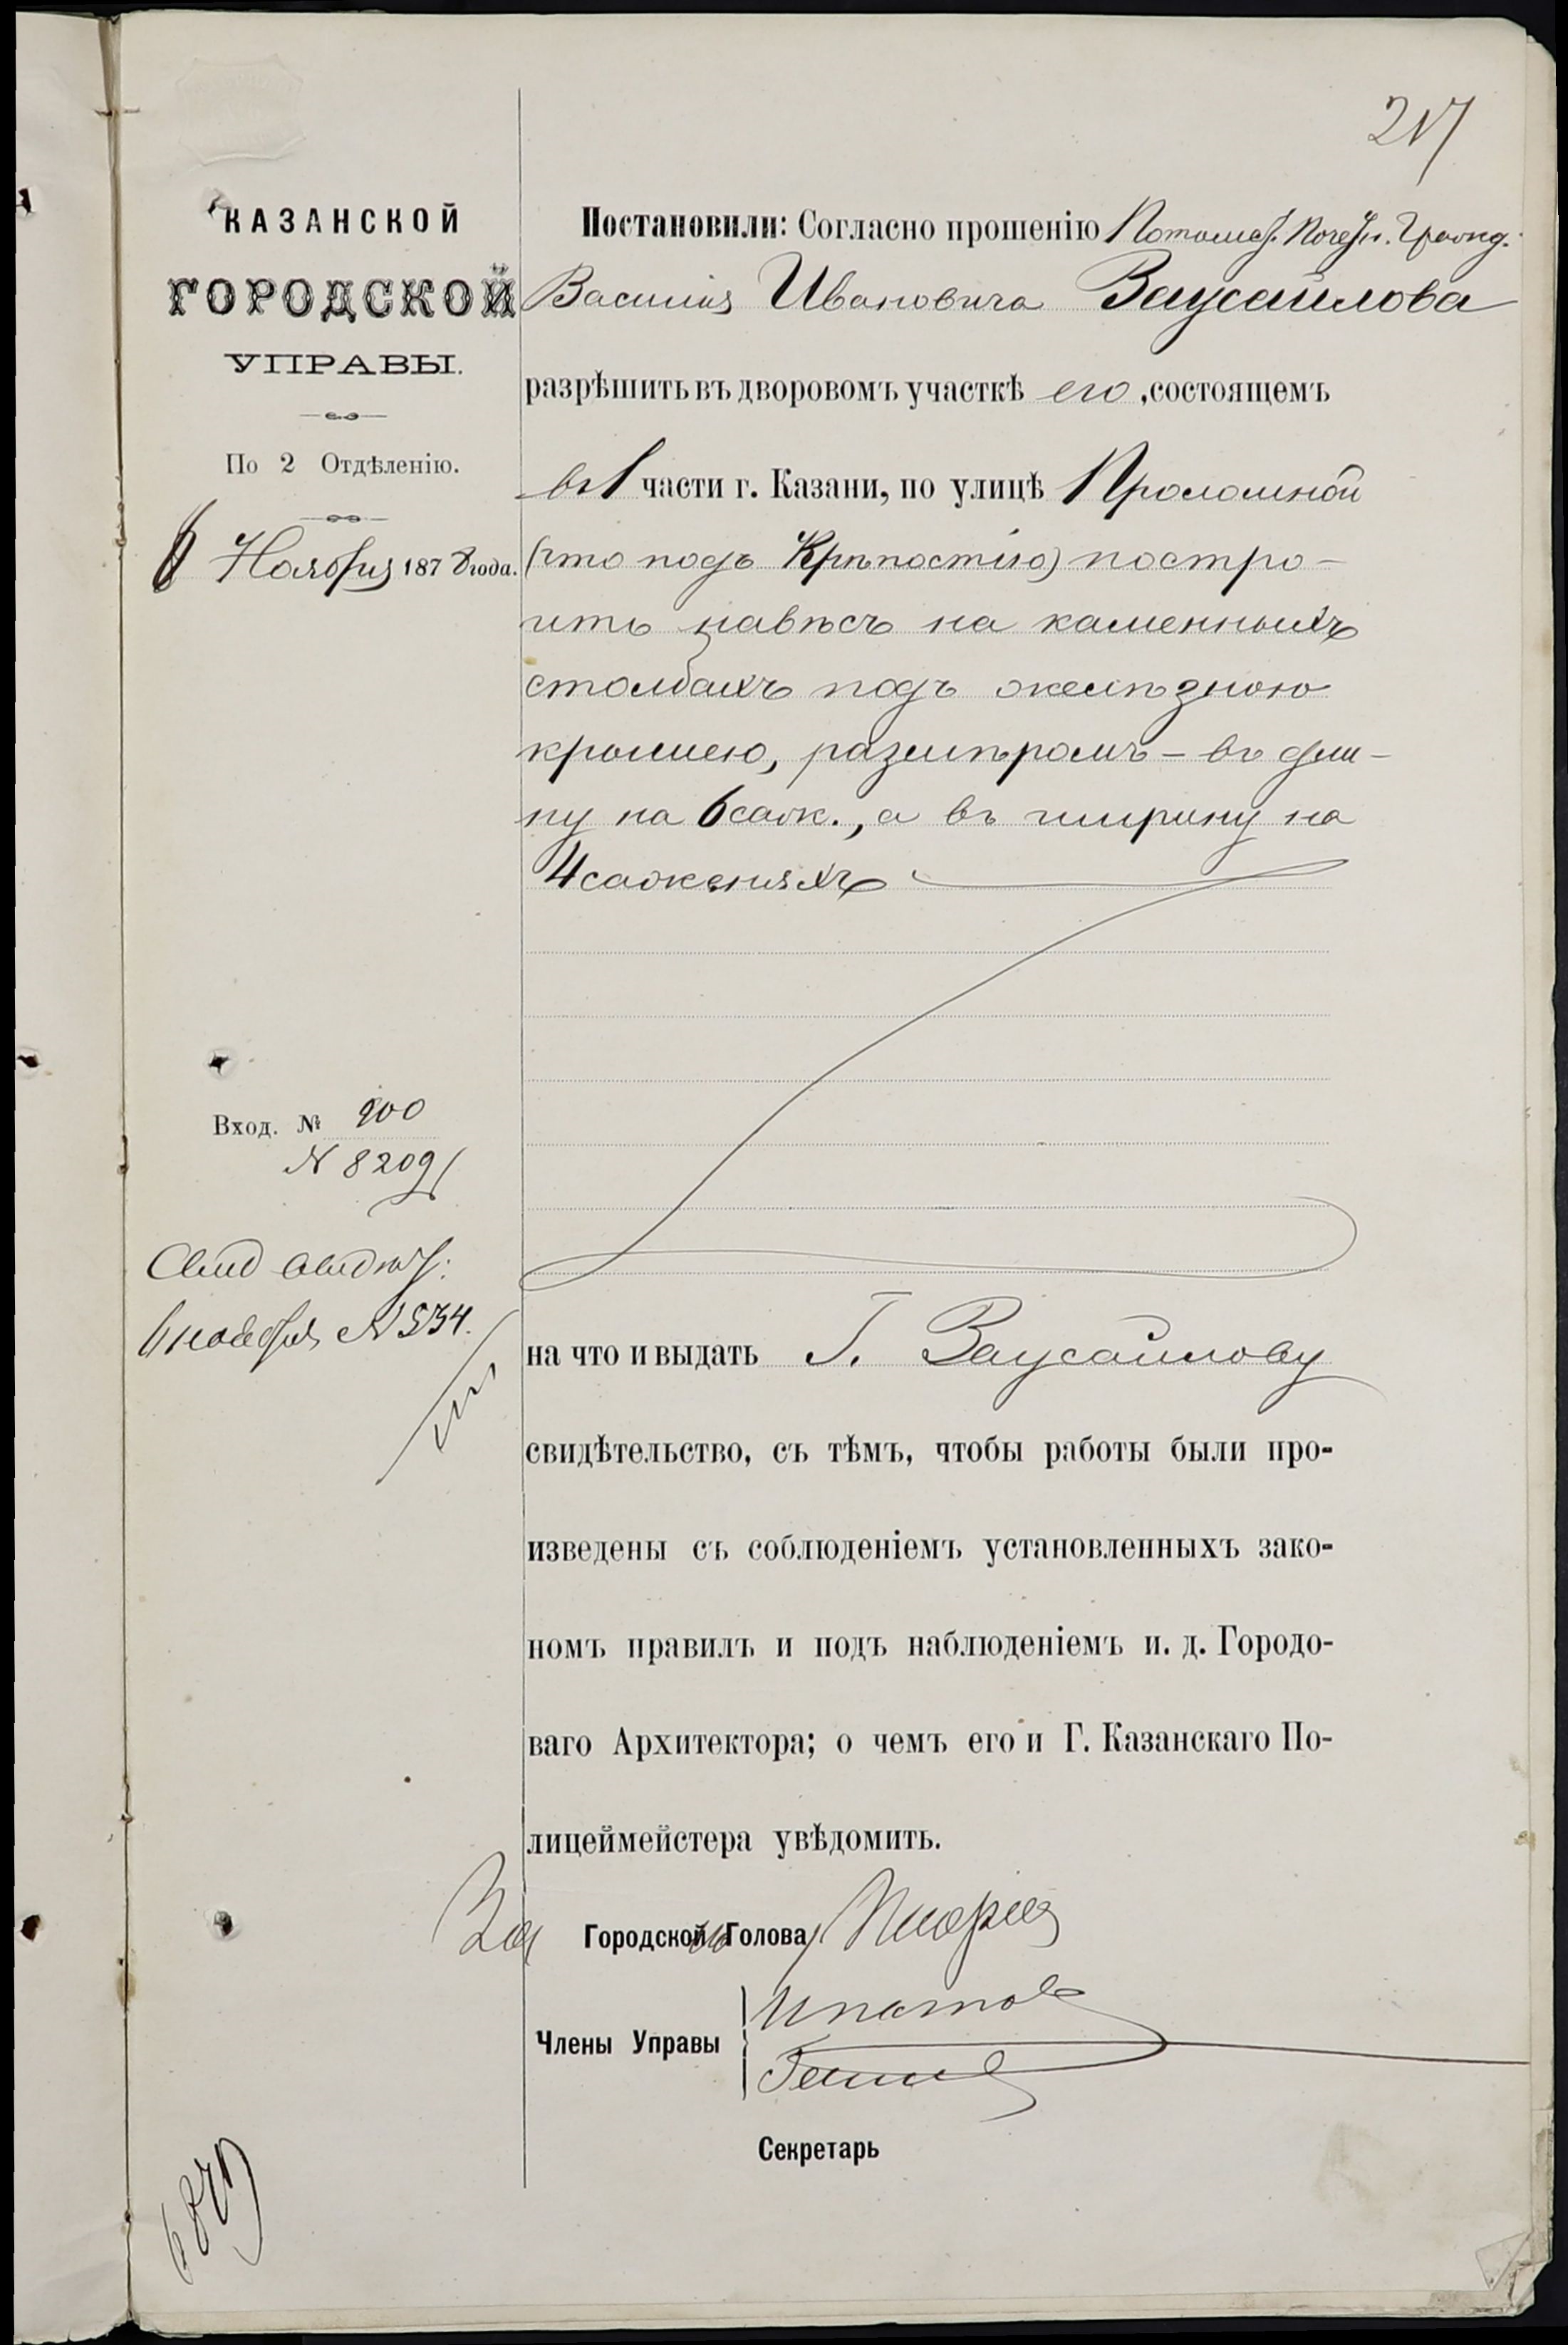 217
КАЗАНСКОЙ
ГОРОДСКОЙ
УПРАВЫ.
По 2 Отдѣленію.
6 Ноября 1878 года.
Вход. № 900
N 8209
6 ноября N 534.
Постановили: Согласно прошенію Потомст. Почетн. Гражд.
Василія Ивановича Заусайлова
разрѣшить въ дворовомъ участкѣ его, состоящемъ
въ 1 части г. Казани, по улицѣ Проломной
(что подъ Крѣпостію) постро-
ить навѣсъ на каменныхъ
столбахъ подъ желѣзною
крышею, размѣромъ – въ дли-
ну на 6 саж., а въ ширину на
4 саженяхъ
на что и выдать Г. Заусайлову
свидѣтельство, съ тѣмъ, чтобы работы были про-
изведены съ соблюденіемъ установленныхъ зако-
номъ правилъ и подъ наблюденіемъ и. д. Городо-
ваго Архитектора; о чемъ его и Г. Казанскаго По-
лицеймейстера увѣдомить.
За Городской Голова
Члены Управы
Ипатов
Секретарь